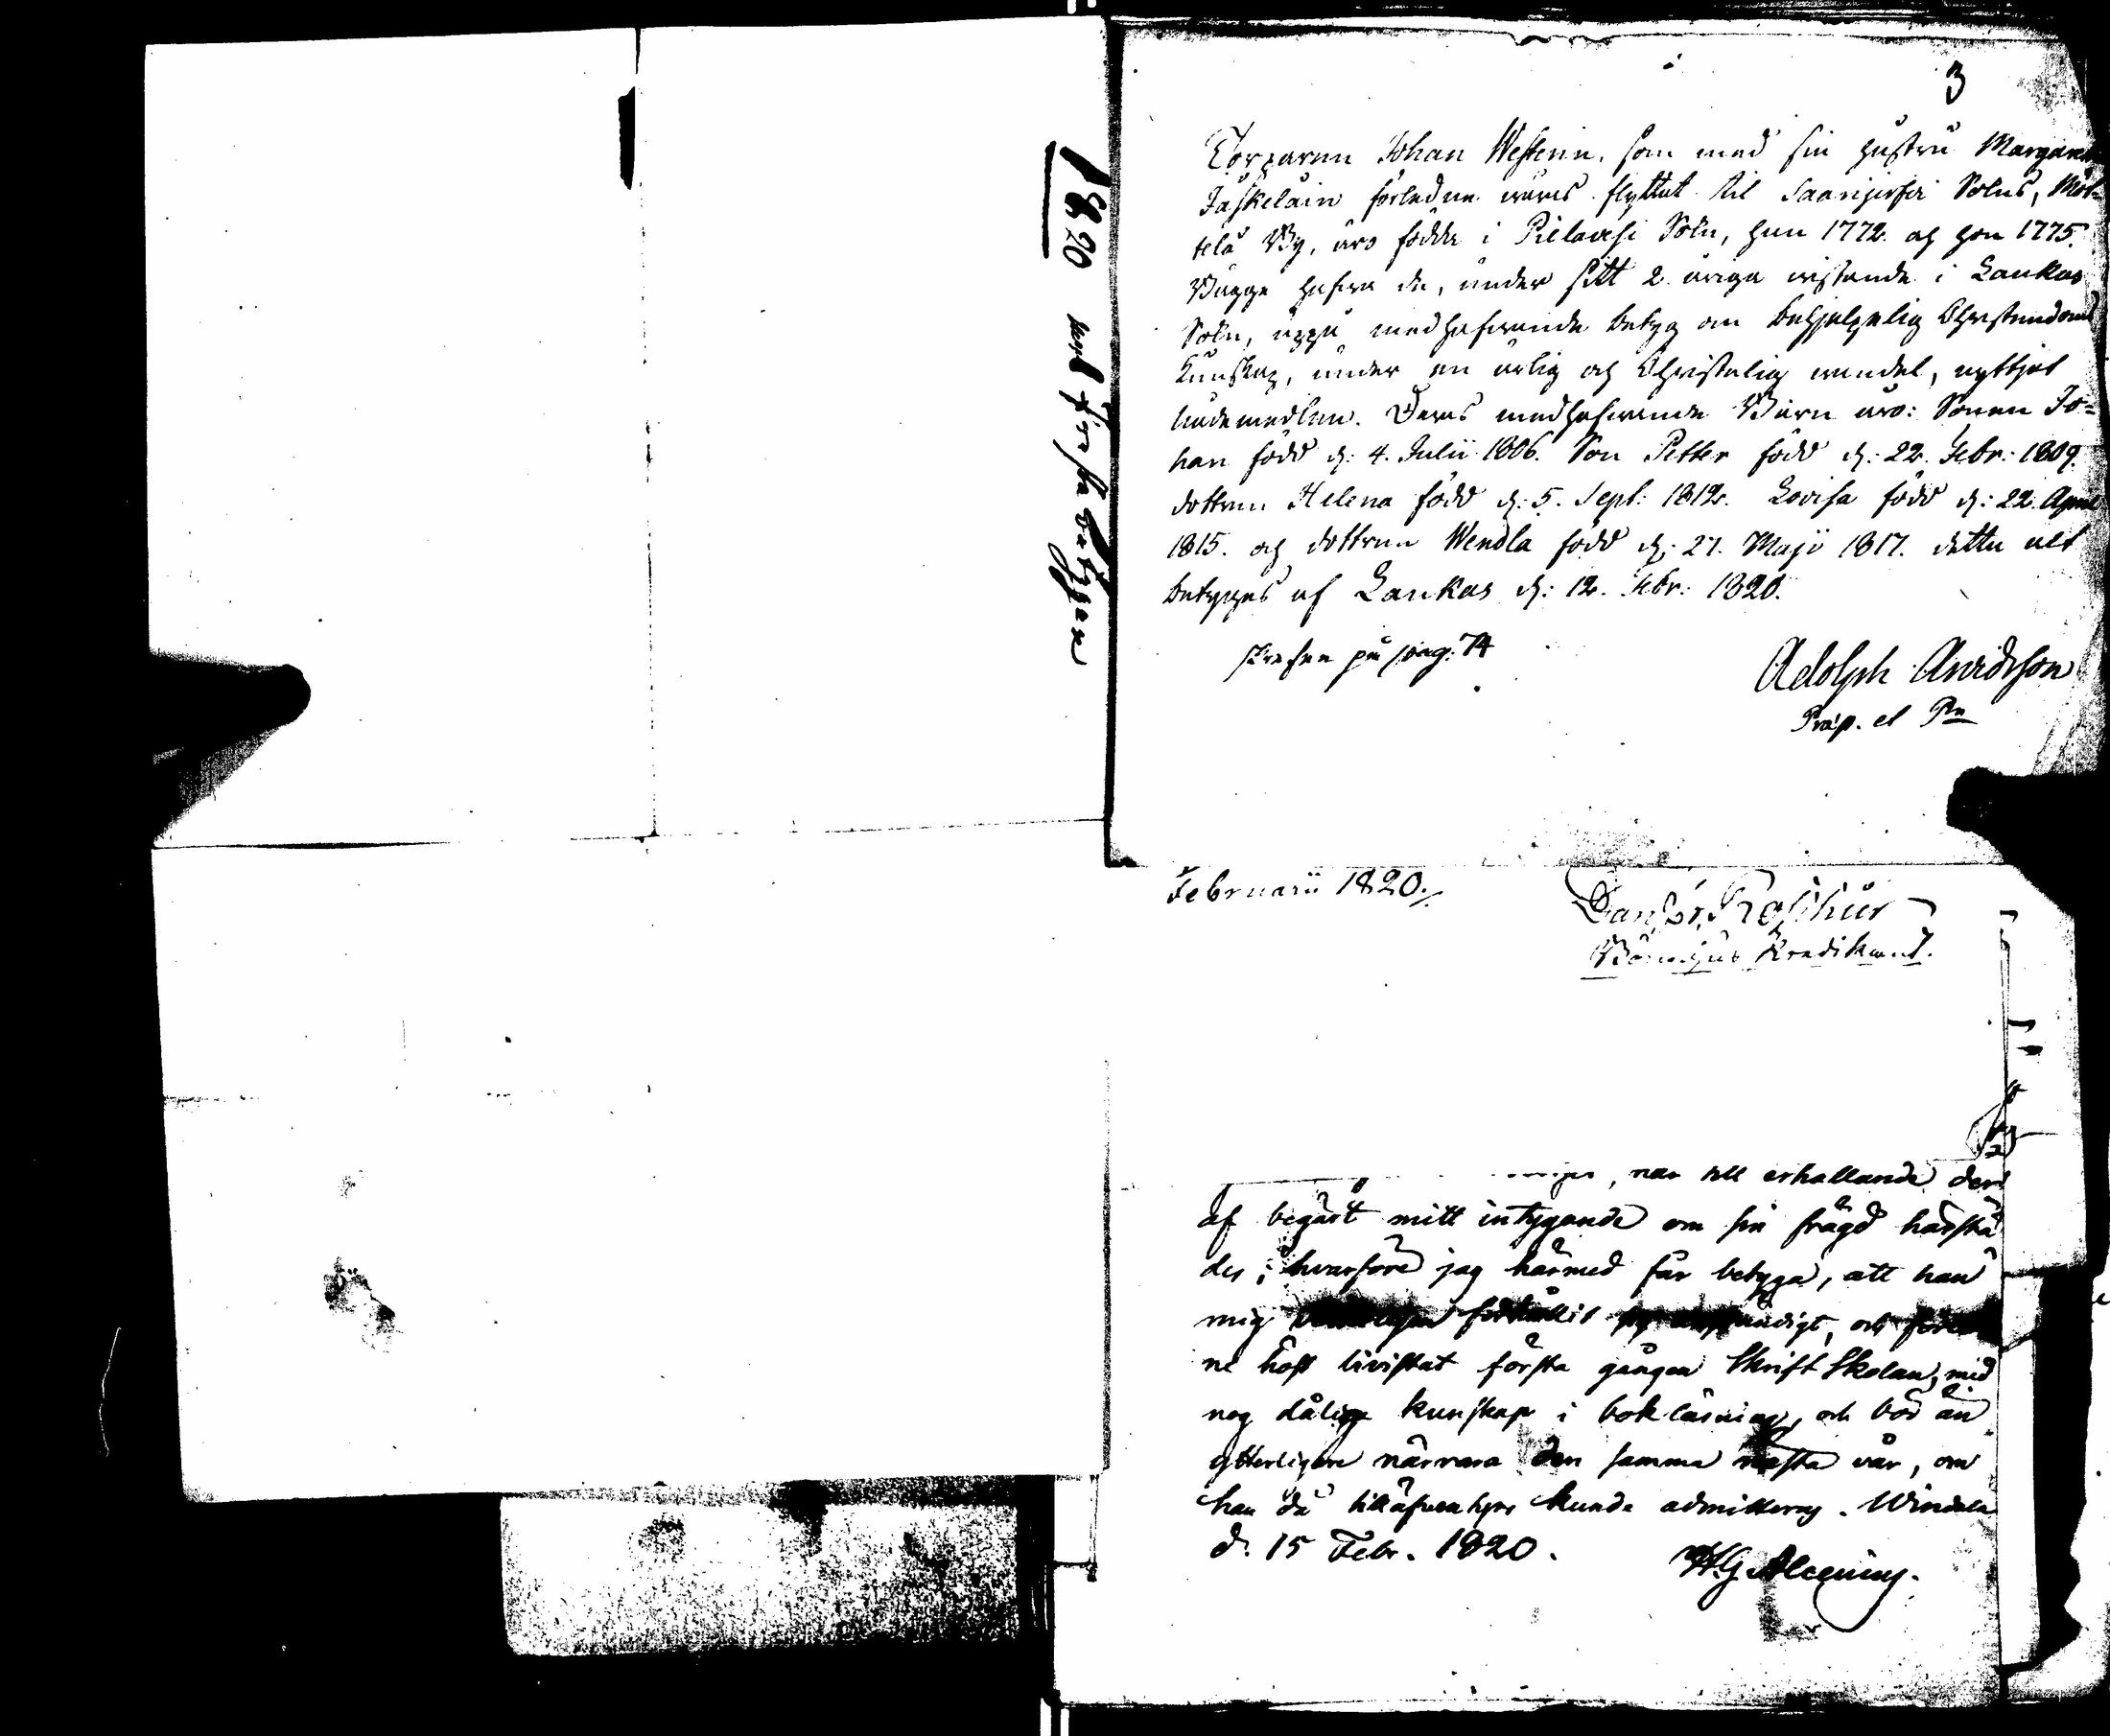 1820 års frejdebetygen
3
Torparen Johan Westerin, som med sin hustru Margareta
Jäskeläin förledne wåras flyttat til Saarijerfvi Sokns, Mot-
telä By, äro födde i Pielavesi Sokn, han 1772. och hon 1775.
Bägge hafva de, under sitt 2 åriga vistande i Laukas
Sokn, uppå medhafvande betyg om behjelpelig Christendoms
kunskap, under en ärlig och Christelig vandel, nyttjat
nådemedlen. Deras medhafvande Barn äro: Sonen Jo=
han född d: 4. Julii 1806. Son Petter född d: 22. Febr: 1809.
dottren Helena född d: 5. Sept: 1812. Lovisa född d: 22. April
1815. och dottren Wendla född d: 27. Maji 1817. detta alt
betygges af Laukas d: 12. Febr: 1820.
skrefven på pag: 74
Adolph Arvidsson
Præp. et P
Februarii 1820./.
Predikant.
, när till erhållande der
af begärt mitt intygande om sin frägd härstä
des; hvarföre jag härmed får betyga, att han
mig förhållit anständigt, och förled
ne höst bivistat första gången Skrift Skolan, med
nog dålig kunskap i bokläsning, och bör än
ytterligare närvara den samma nästa vår, om
han då kunde admitteras. Windala
d. 15 Febr. 1820.